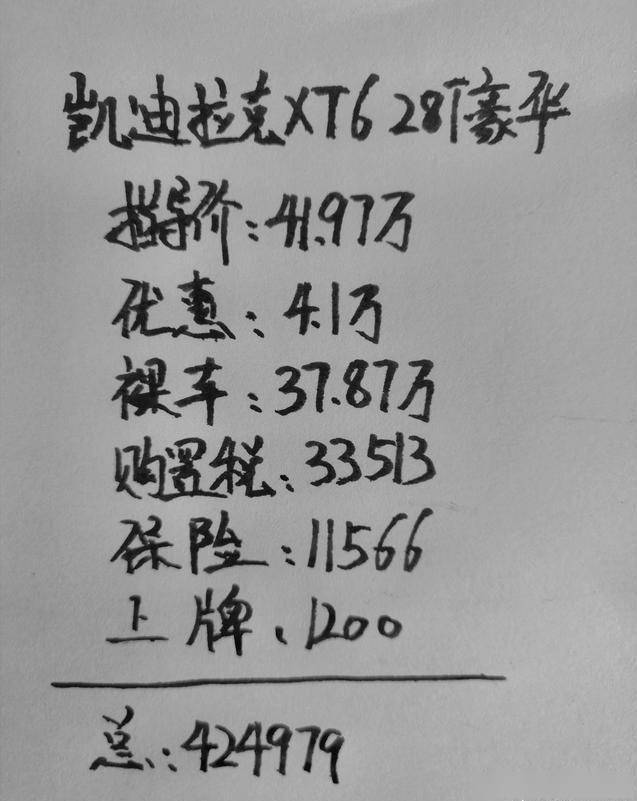 凯迪拉克XT6 28T豪华
指导价:41.97万
优惠:4.1万
裸车:37.87万
购置税:33513
保险:11566
上牌:1200
总:424979